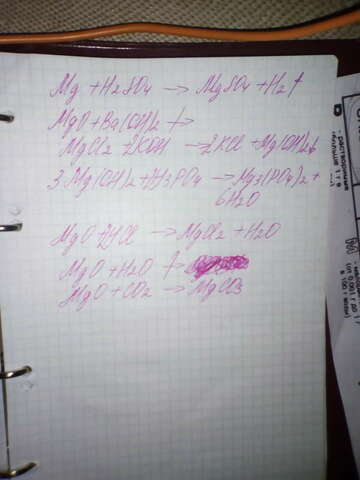 Mg + H2SO4 → MgSO4 + H2↑
MgO + Ba(OH)2 ↛
MgCl2 + 2KOH → 2KCl + Mg(OH)2↓
3Mg(OH)2 + 2H3PO4 → Mg3(PO4)2 +
6H2O
MgO + 2HCl → MgCl2 + H2O
MgO + H2O ↛
MgO + CO2 → MgCO3